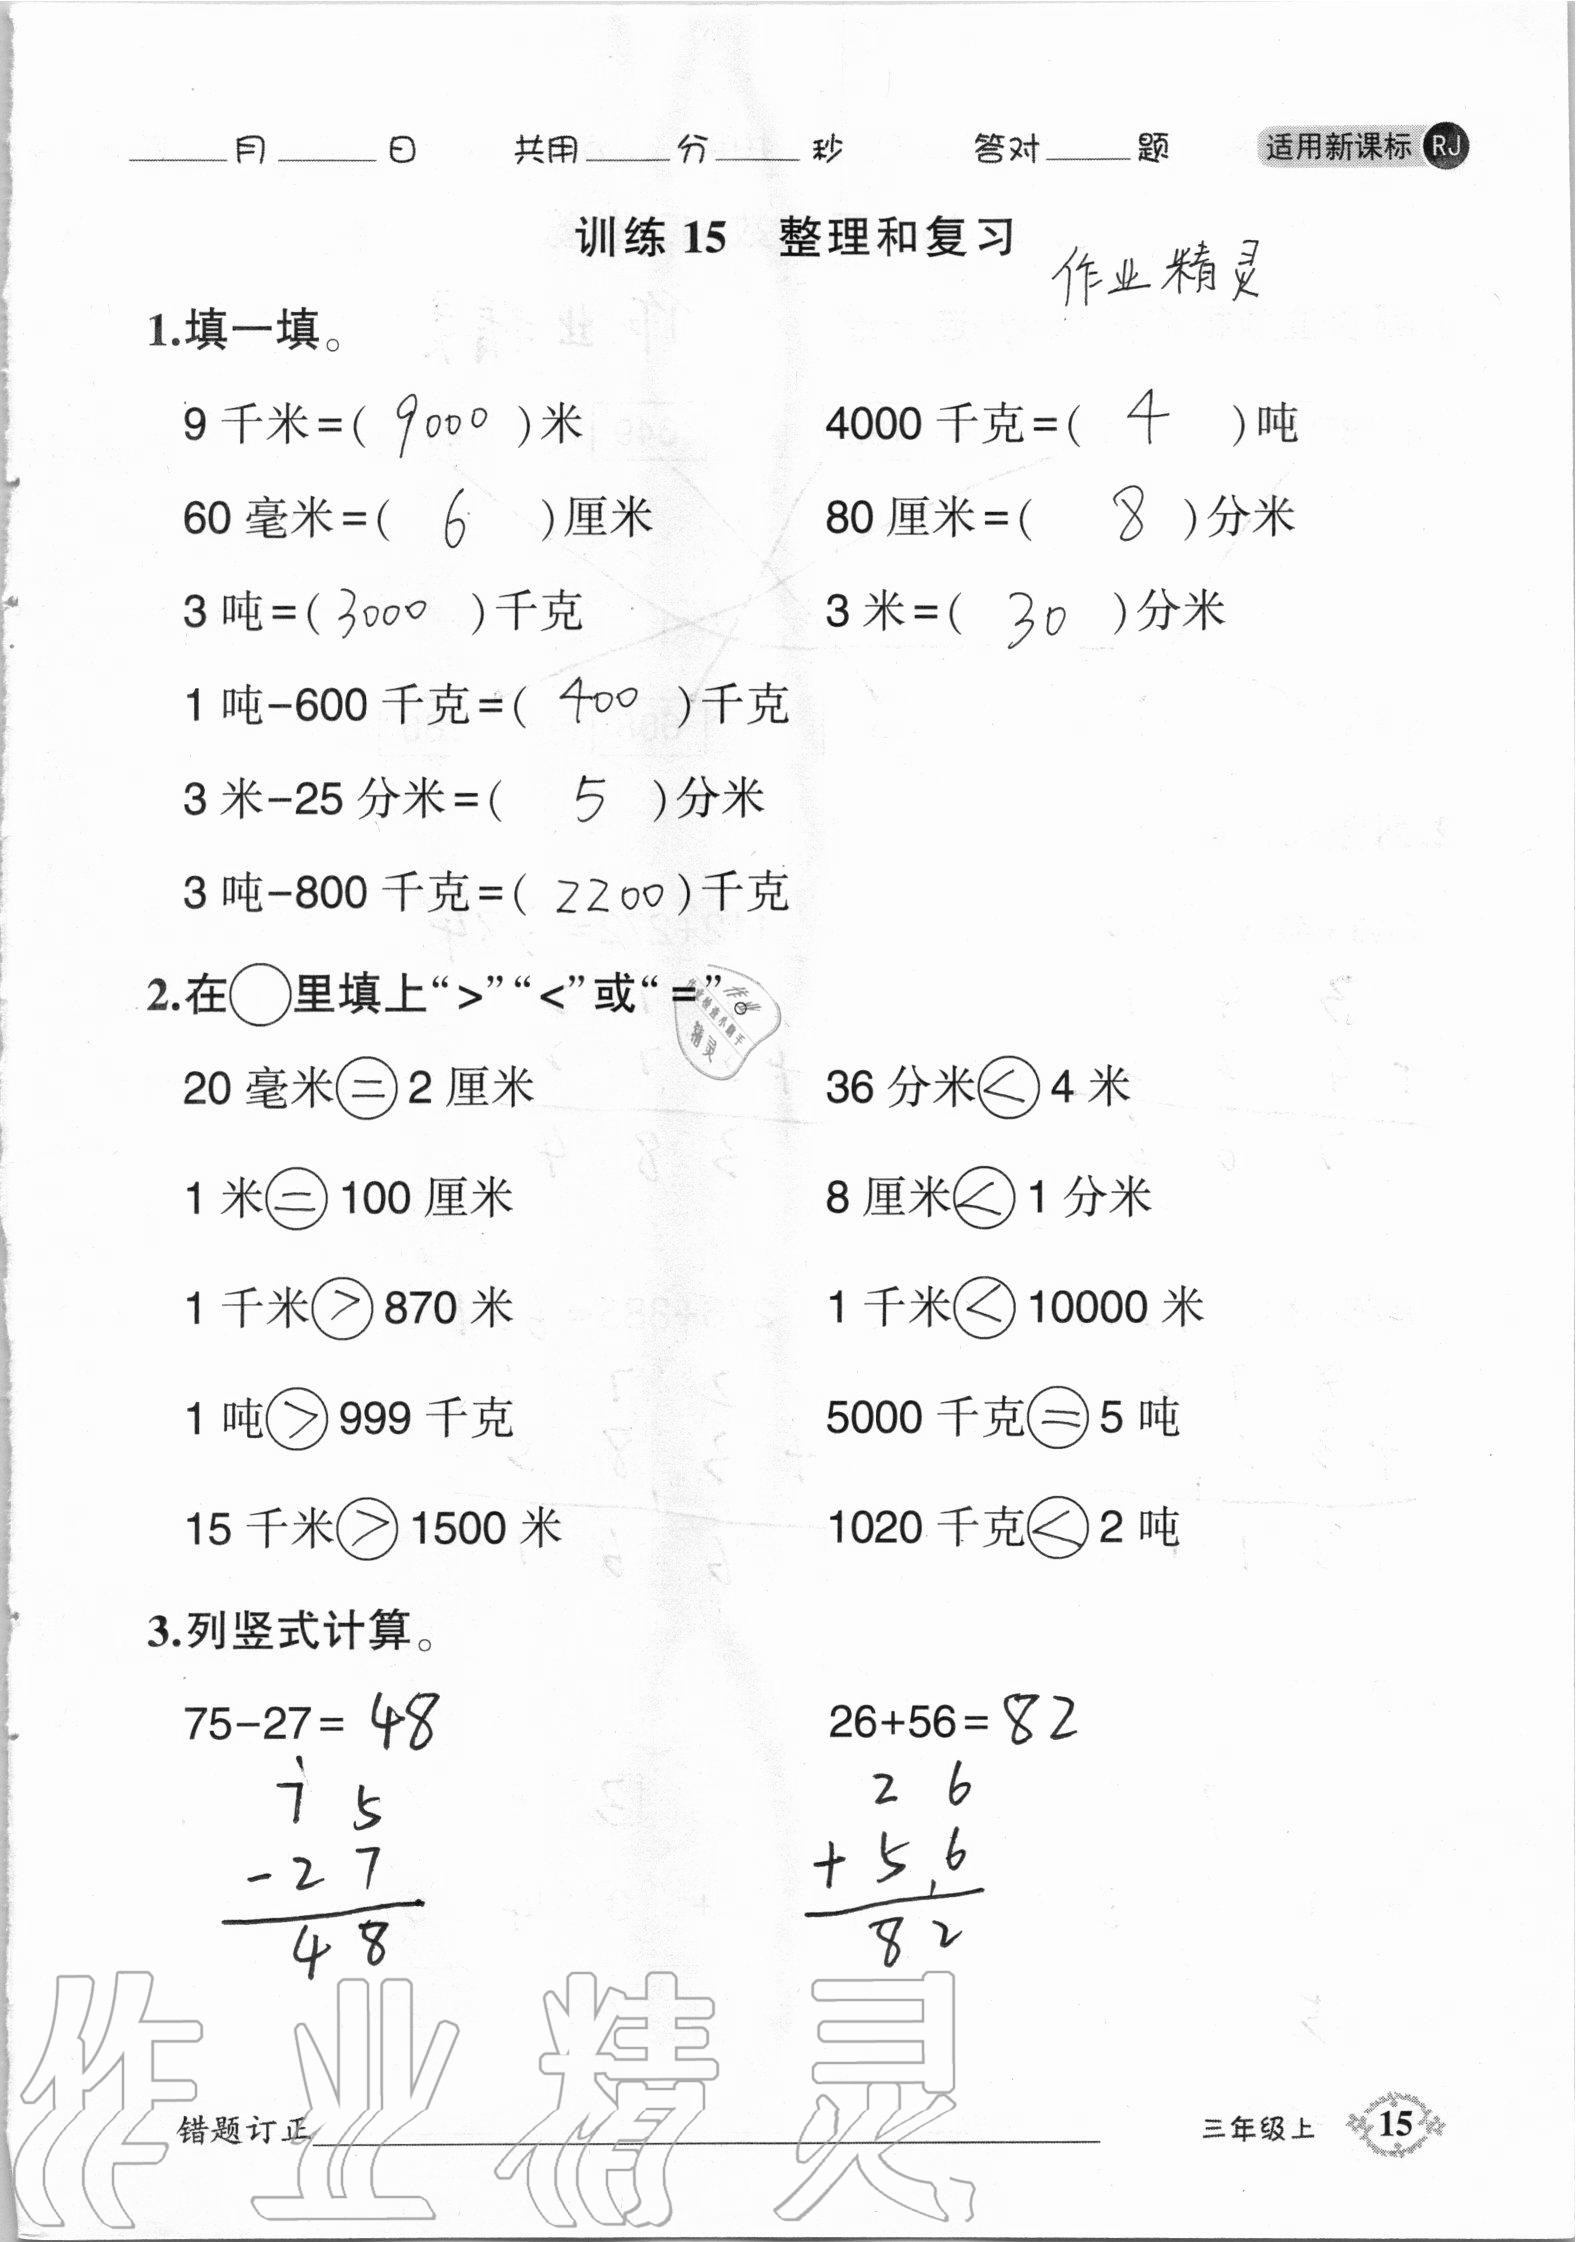 ____月____日 共用____分____秒 答对____题 适用新课标 RJ
训练 15 整理和复习
作业精灵
1.填一填。
9 千米=( 9000 )米 4000 千克=( 4 )吨
60 毫米=( 6 )厘米 80 厘米=( 8 )分米
3 吨=( 3000 )千克 3 米=( 30 )分米
1 吨-600 千克=( 400 )千克
3 米-25 分米=( 5 )分米
3 吨-800 千克=( 2200 )千克
2.在○里填上“>”“<”或“=”。
作业
精灵
20 毫米 = 2 厘米 36 分米 < 4 米
1 米 = 100 厘米 8 厘米 < 1 分米
1 千米 > 870 米 1 千米 < 10000 米
1 吨 > 999 千克 5000 千克 = 5 吨
15 千米 > 1500 米 1020 千克 < 2 吨
3.列竖式计算。
75-27= 48 26+56= 82
7 5 2 6
- 2 7 + 5 6
4 8 8 2
作业精灵
错题订正____ 三年级上 15